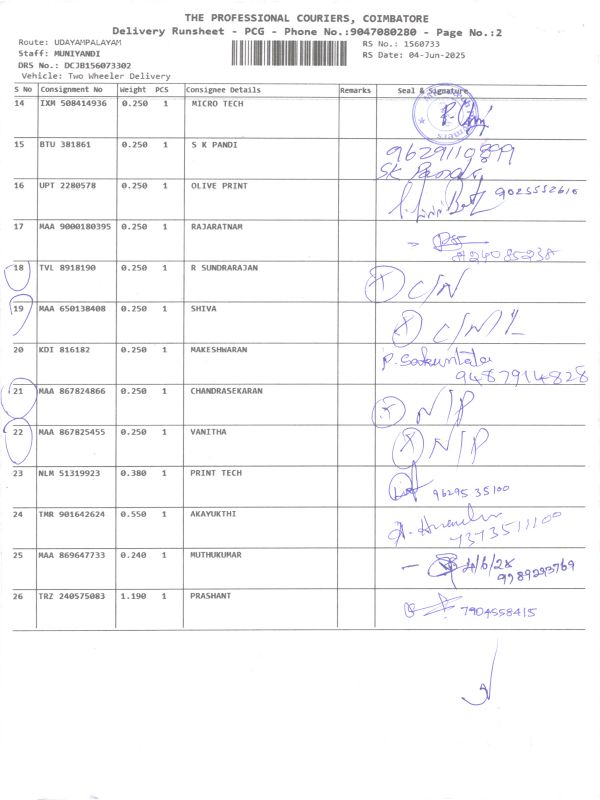 THE PROFESSIONAL COURIERS, COIMBATORE
Delivery Runsheet - PCG - Phone No.:9047080280 - Page No.:2
Route: UDAYAMPALAYAM RS No.: 1560733
Staff: MUNIYANDI RS Date: 04-Jun-2025
DRS No.: DCJB156073302
Vehicle: Two Wheeler Delivery
S No Consignment No Weight PCS Consignee Details Remarks Seal & Signature
14 IXM 508414936 0.250 1 MICRO TECH
15 BTU 381861 0.250 1 S K PANDI 9629119899
SK Pandi
16 UPT 2280578 0.250 1 OLIVE PRINT 9025552610
17 MAA 9000180395 0.250 1 RAJARATNAM
18 TVL 8918190 0.250 1 R SUNDRARAJAN C/N
19 MAA 650138408 0.250 1 SHIVA
20 KDI 816182 0.250 1 MAKESHWARAN P. Sakuntala
9487914828
21 MAA 867824866 0.250 1 CHANDRASEKARAN N/P
22 MAA 867825455 0.250 1 VANITHA N/P
23 NLM 51319923 0.380 1 PRINT TECH 96295 35100
24 TMR 901642624 0.550 1 AKAYUKTHI
7373511100
25 MAA 869647733 0.240 1 MUTHUKUMAR
26 TRZ 240575083 1.190 1 PRASHANT 7904558415